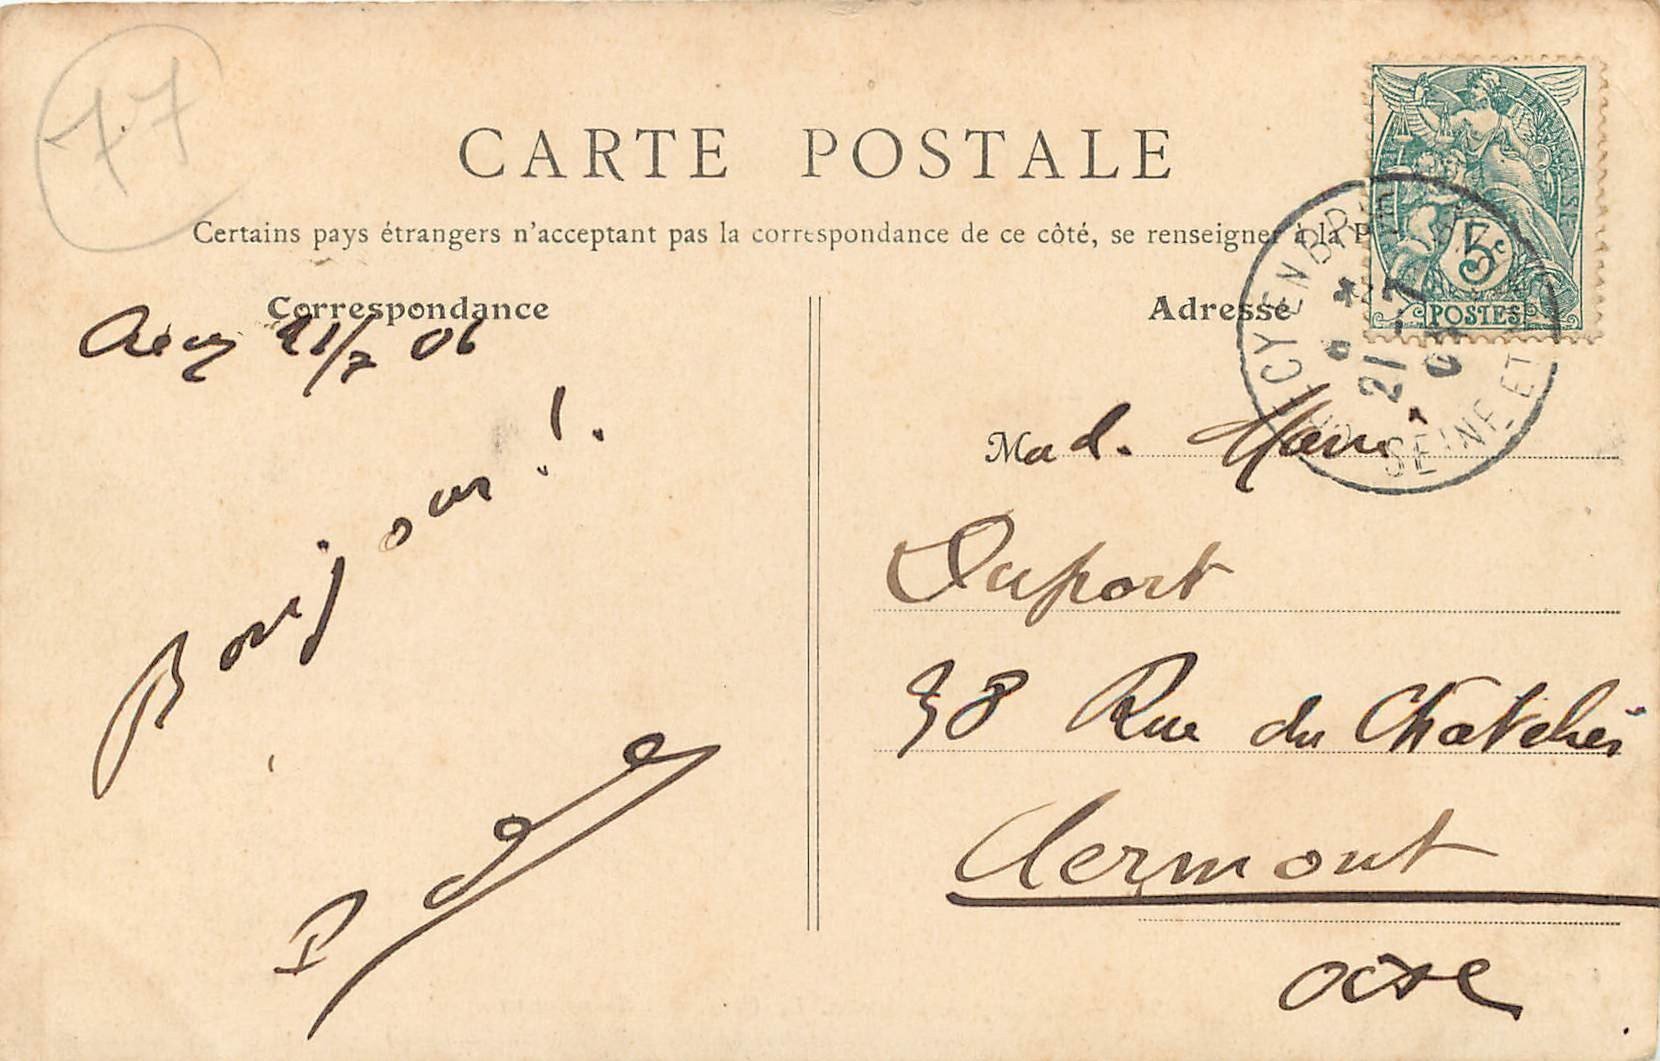 77
CARTE POSTALE
Certains pays étrangers n'acceptant pas la correspondance de ce côté, se renseigner à la P
Correspondance
Crécy 21/7 06
Bonjour !.
Adresse
FRANÇAISE
5c
POSTES
CRECY EN BRIE
21 -7
SEINE ET
Mad. Marie
Duport
38 Rue du Châtelier
Clermont
Oise